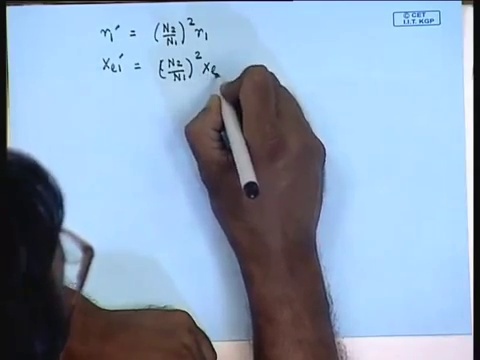 © CET
I.I.T. KGP
r₁′ = (N₂/N₁)² r₁
xₑ₁′ = (N₂/N₁)² xₑ